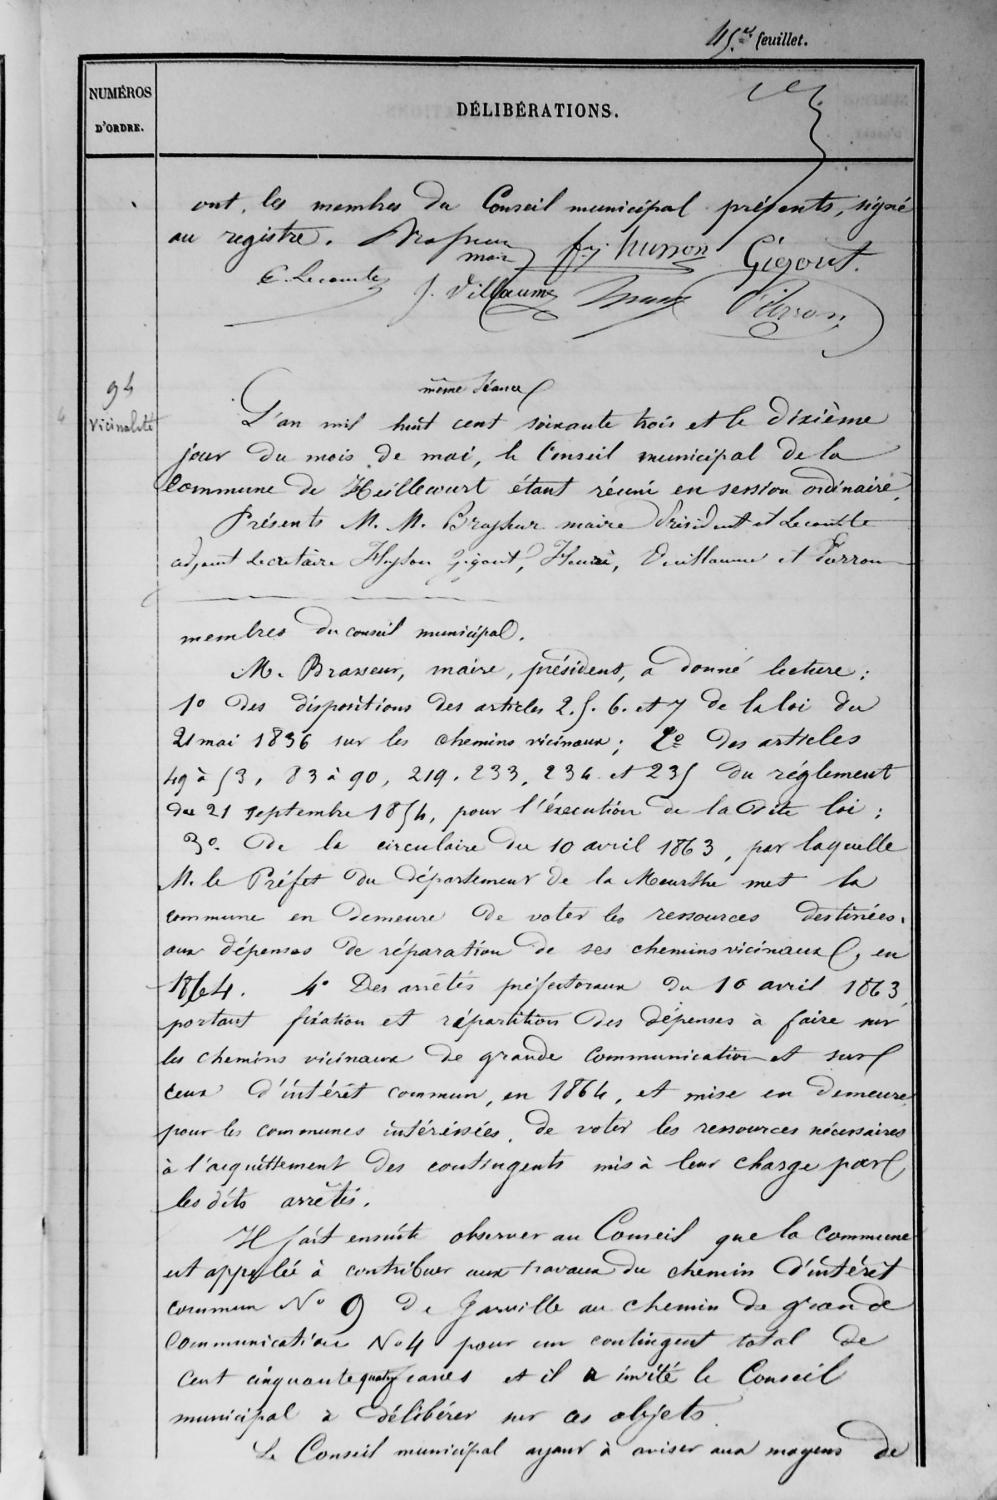 45.e feuillet.
NUMÉROS
D'ORDRE.
DÉLIBÉRATIONS.
ont, les membres du Conseil municipal présents, signé
au registre. Brasseur fs. husson Gégout.
maire
C. Lecomte J. Villaume Pierron
même séance
94
Vicinalité
L'an mil huit cent soixante trois et le dixième
jour du mois de mai, le Conseil municipal de la
Commune de Heillecourt étant réuni en session ordinaire,
Présents M. M. Brasseur maire Président et Lecomte
adjoint Secretaire Husson Gigout, Vuillaume et Pierron
membres du conseil municipal.
M. Brasseur, maire, président, a donné lecture :
1o des dispositions des articles 2. 5. 6. et 7 de la loi du
21 mai 1836 sur les chemins vicinaux; 2o des articles
49 à 53, 83 à 90, 219. 233, 234 et 235 du réglement
du 21 septembre 1854, pour l'éxecution de la dite loi ;
3o. De la circulaire du 10 avril 1863, par laquelle
M. le Préfet du département de la Meurthe met la
commune en demeure de voter les ressources destinées
aux dépenses de réparation de ses chemins vicinaux, en
1864. 4o Des arrêtés préfectoraux du 10 avril 1863,
portant fixation et répartition des dépenses à faire sur
les chemins vicinaux de grande communication et sur
ceux d'intérêt commun, en 1864, et mise en demeure
pour les communes intéréssées, de voter les ressources nécessaires
à l'acquittement des contingents mis à leur charge par
les dits arrêtés.
Il fait ensuite observer au Conseil que la commune
est appelée à contribuer aux travaux du chemin d'intérêt
commun No 9 de Jarville au chemin de grande
communication No 4 pour un contingent total de
Cent cinquante quatre francs et il a invité le Conseil
municipal à délibérer sur ces objets.
Le Conseil municipal ayant à aviser aux moyens de